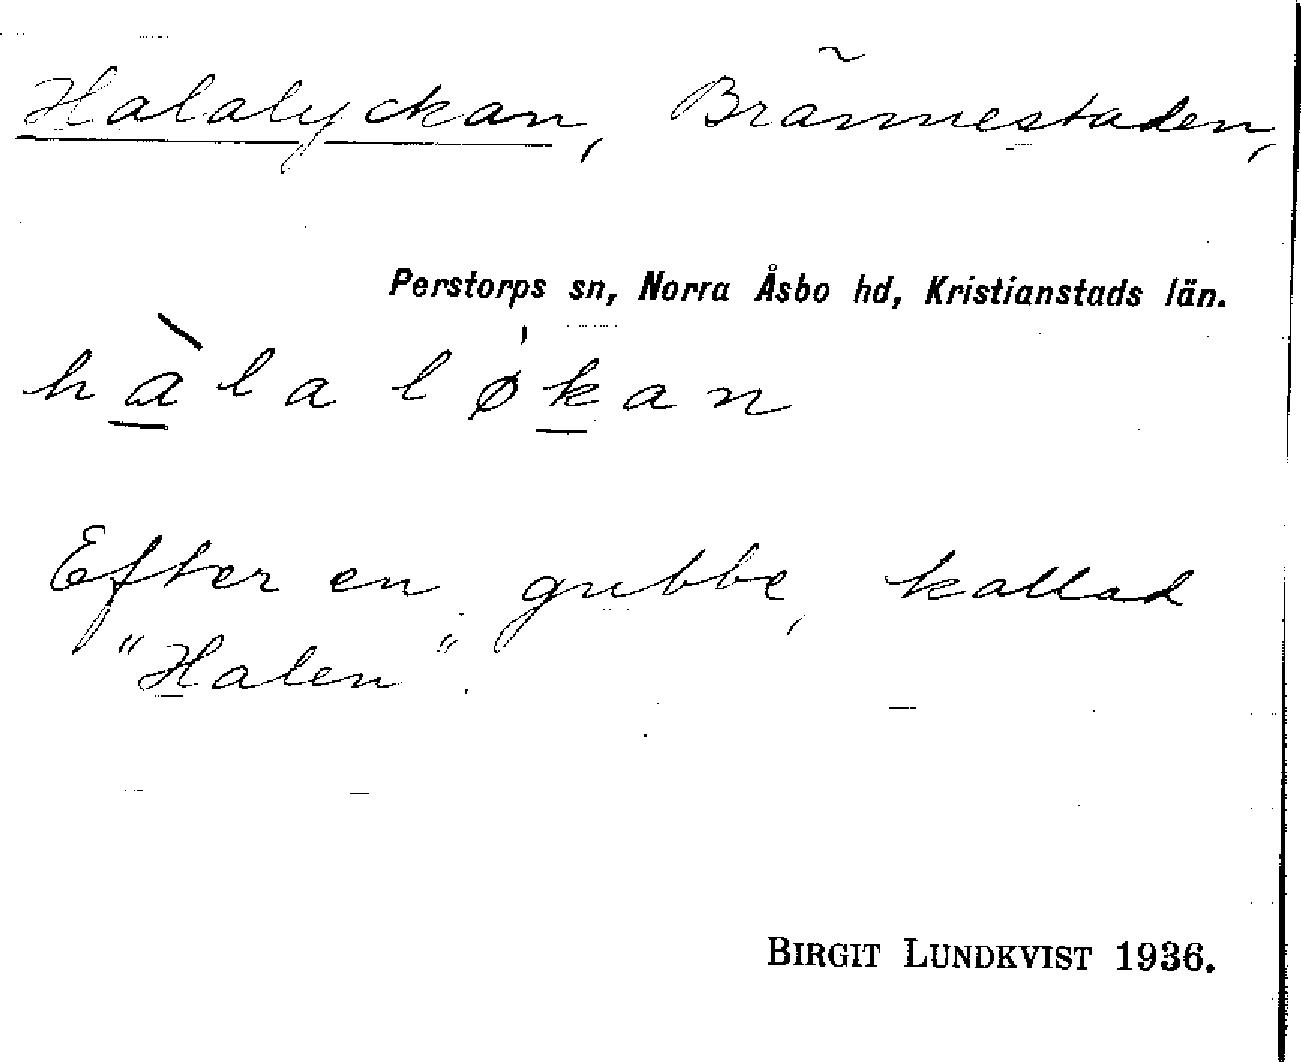 Halalyckan, Brännestaden,
Perstorps sn, Norra Åsbo hd, Kristianstads län.
hàlaløkan
Efter en gubbe, kallad
"Halen".
BIRGIT LUNDKVIST 1936.